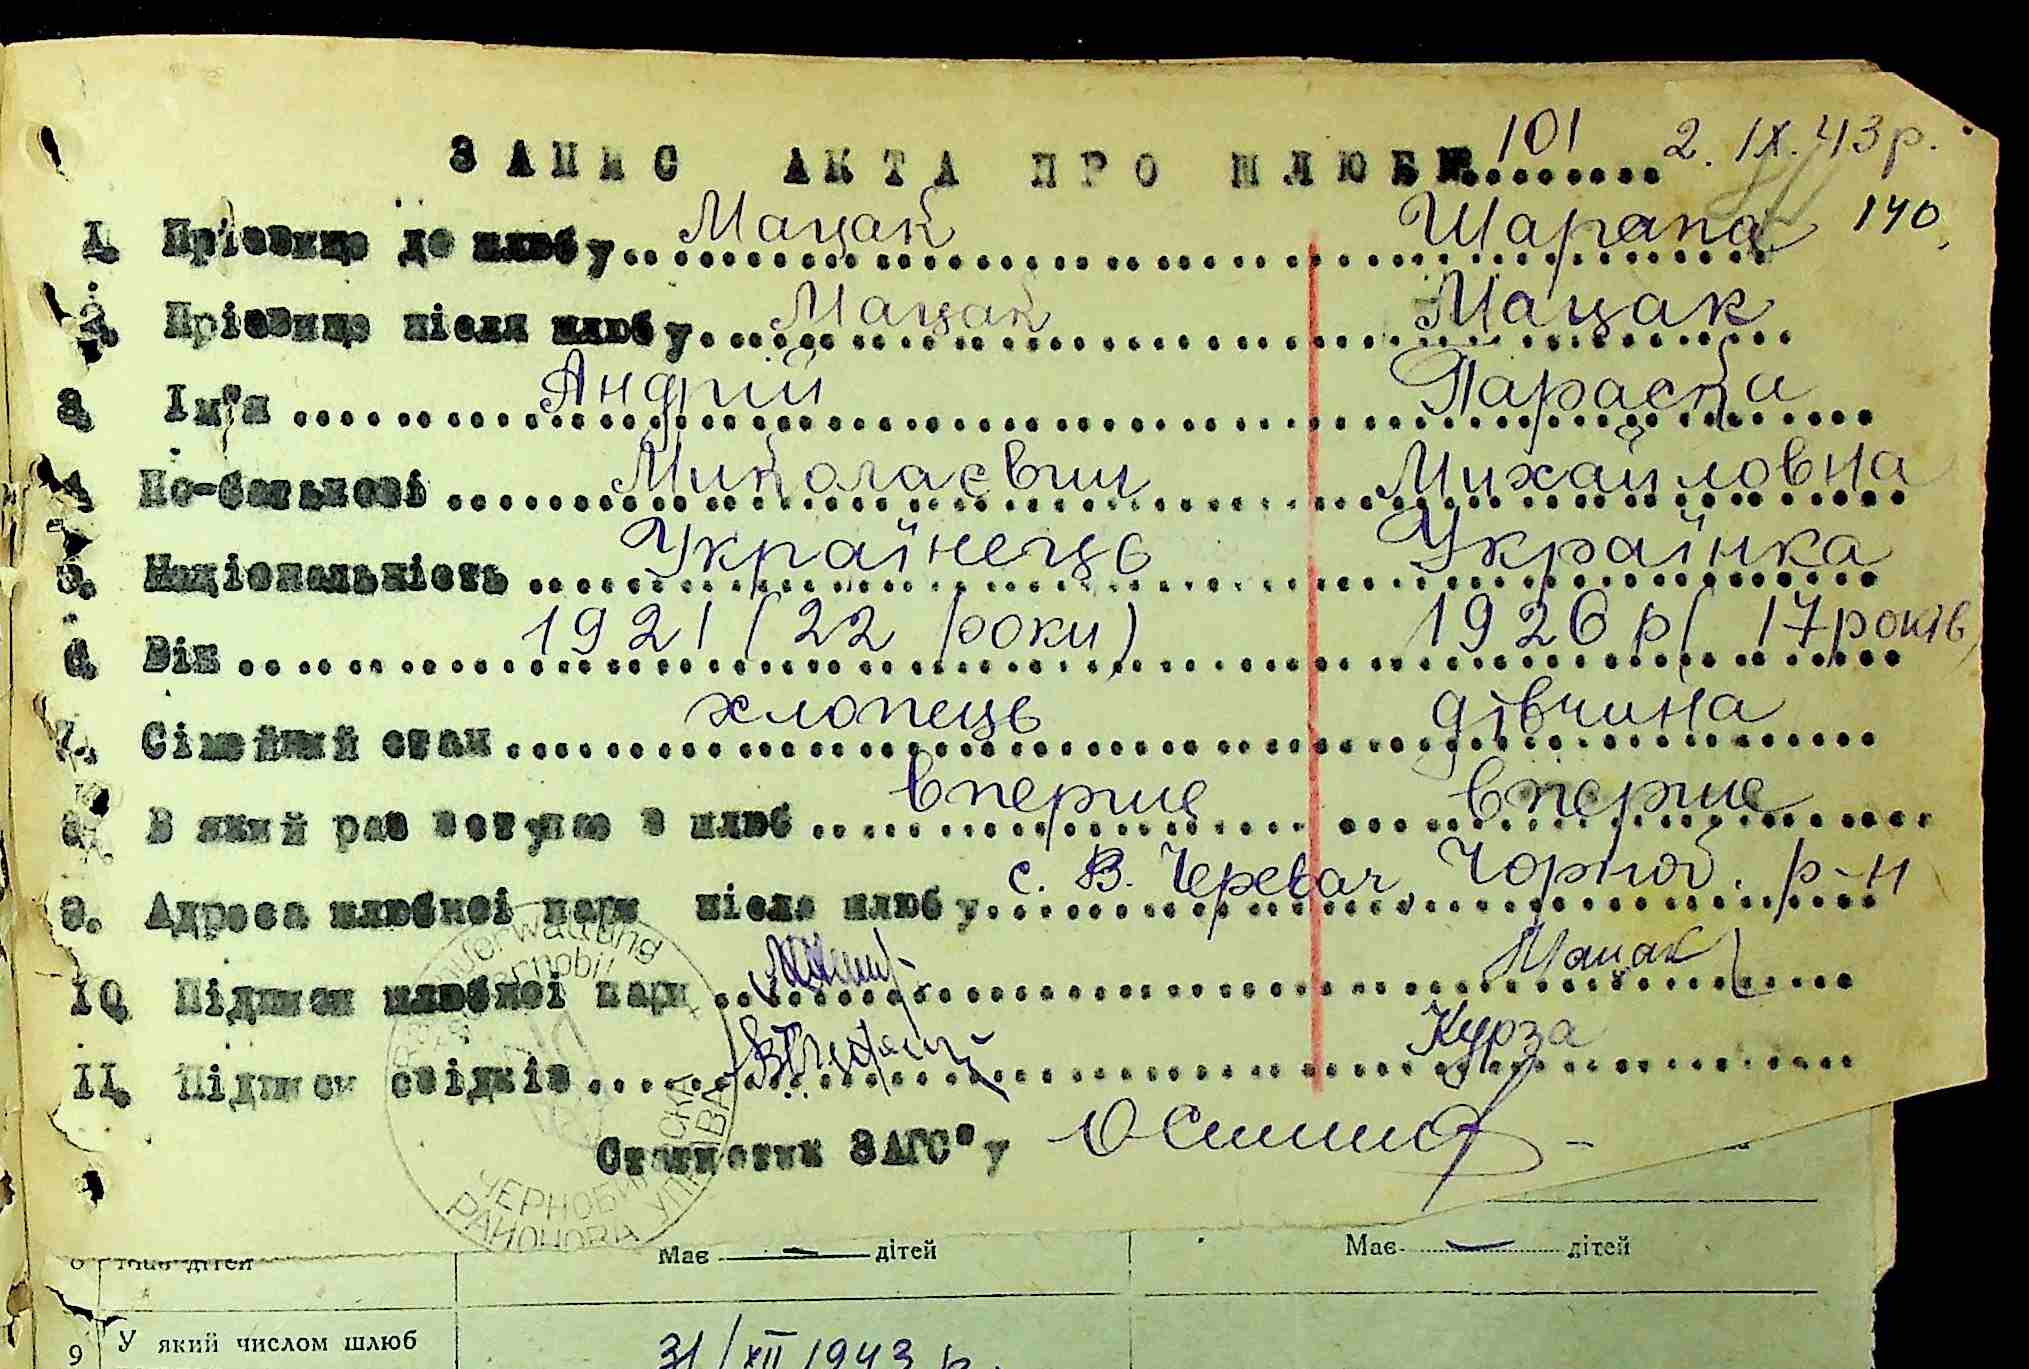 ЗАПИС АКТА ПРО ШЛЮБ № 101 2. IX. 43 р.
140
1. Прізвище до шлюбу Мацак Шарапа
2. Прізвище після шлюбу Мацак Мацак
3. Ім"я Андрій Параска
4. По-батькові Миколаєвич Михайловна
5. Національність Українець Українка
6. Вік 1921 (22 роки) 1926 р ( 17 років)
7. Сімейний стан хлопець дівчина
8. В який раз вступає в шлюб вперше вперше
9. Адреса шлюбної пари після шлюбу с. В. Черевач, Чорноб. р-н
10. Підписи шлюбної пари Мацак
11. Підписи свідків Курза
Статистик ЗАГС"у
ЧЕРНОБИЛЬСКА
РАЙОНОВА УПРАВА
Має дітей Має дітей
9 У який числом шлюб 31/XII 1943 р.